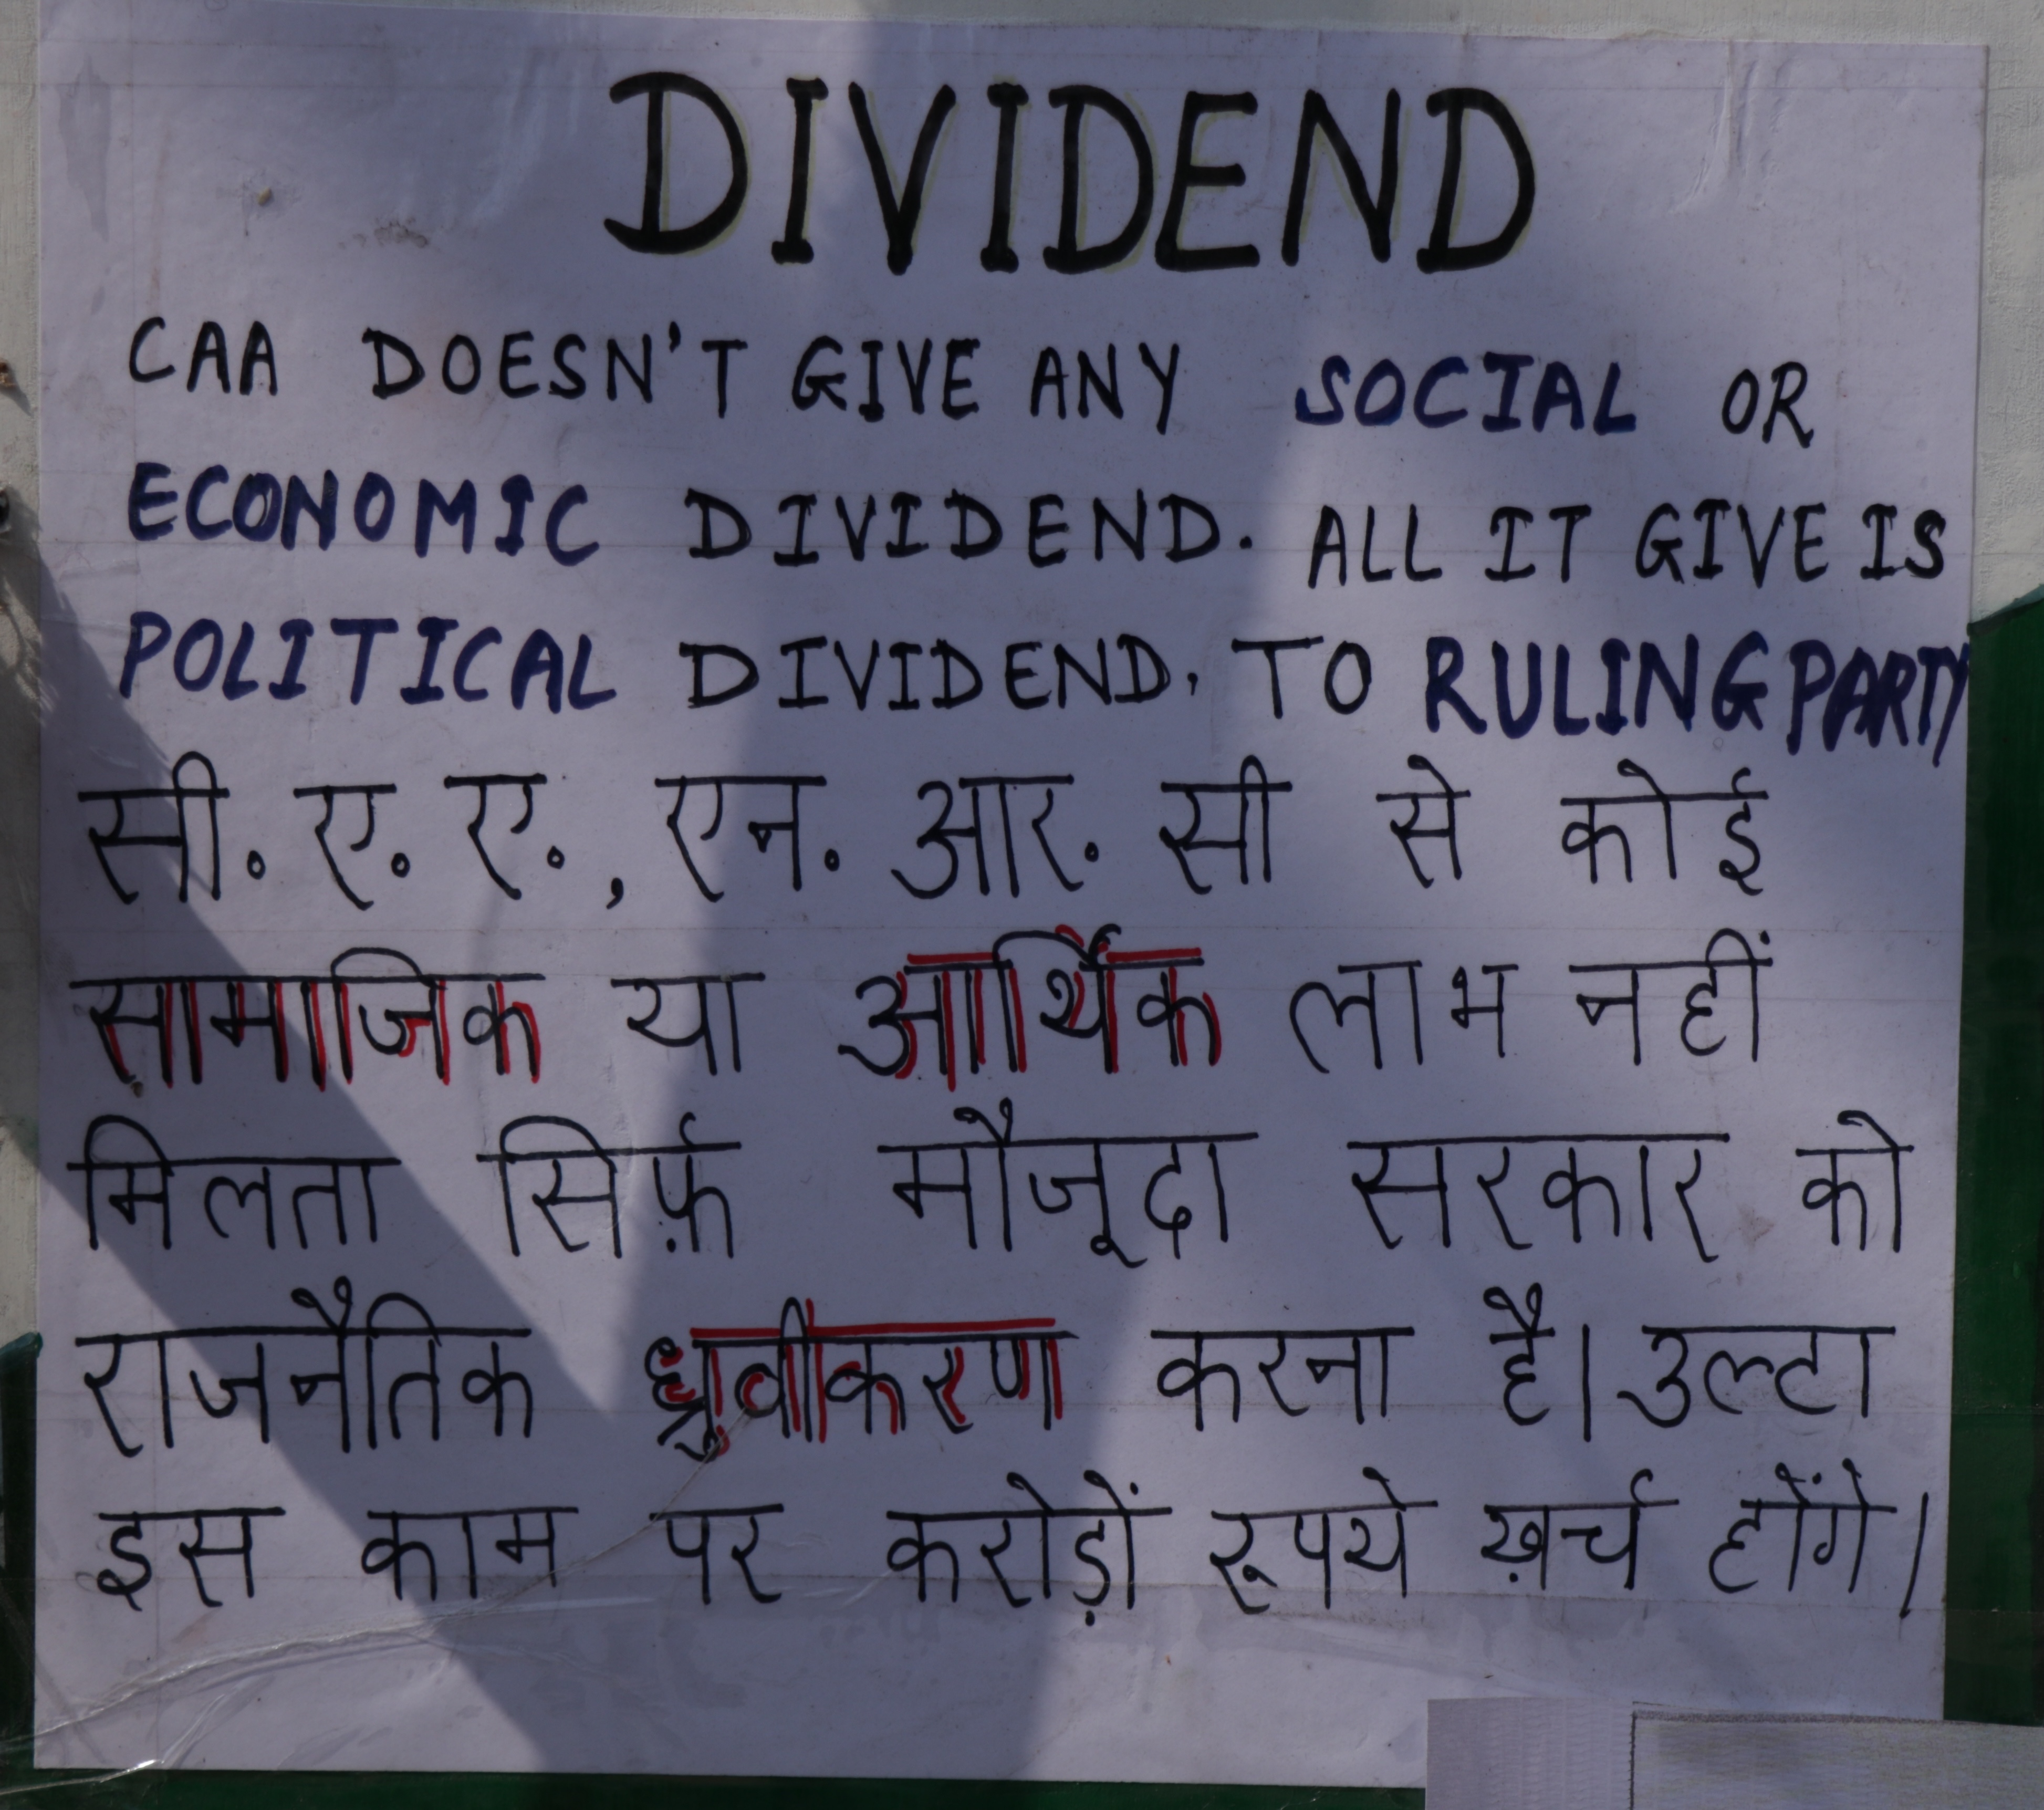 DIVIDEND
CAA DOESN'T GIVE ANY SOCIAL OR
ECONOMIC DIVIDEND. ALL IT GIVE IS
POLITICAL DIVIDEND. TO RULING PARTY
सी. ए. ए. , एन. आर. सी से कोई
सामाजिक या आर्थिक लाभ नहीं
मिलता सिर्फ़ मौजूदा सरकार को
राजनैतिक ध्रुवीकरण करना है। उल्टा
इस काम पर करोड़ों रूपये ख़र्च होंगे।